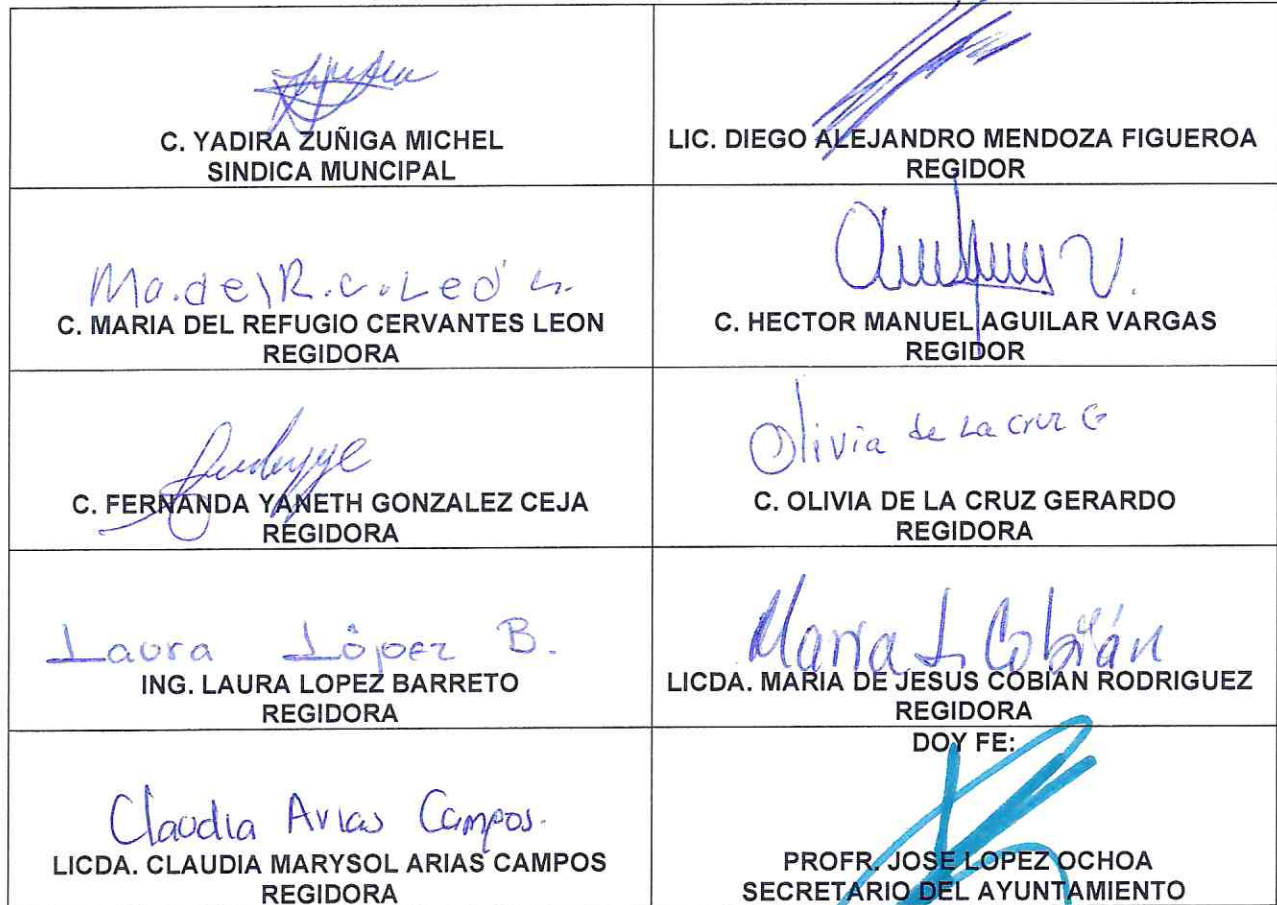 C. YADIRA ZUÑIGA MICHEL
SINDICA MUNCIPAL
LIC. DIEGO ALEJANDRO MENDOZA FIGUEROA
REGIDOR
Ma.del R.C.León
C. MARIA DEL REFUGIO CERVANTES LEON
REGIDORA
C. HECTOR MANUEL AGUILAR VARGAS
REGIDOR
C. FERNANDA YANETH GONZALEZ CEJA
REGIDORA
Olivia de La cruz G
C. OLIVIA DE LA CRUZ GERARDO
REGIDORA
Laura López B.
ING. LAURA LOPEZ BARRETO
REGIDORA
Maria J. Cobián
LICDA. MARIA DE JESUS COBIAN RODRIGUEZ
REGIDORA
Claudia Arias Campos.
LICDA. CLAUDIA MARYSOL ARIAS CAMPOS
REGIDORA
DOY FE:
PROFR. JOSE LOPEZ OCHOA
SECRETARIO DEL AYUNTAMIENTO